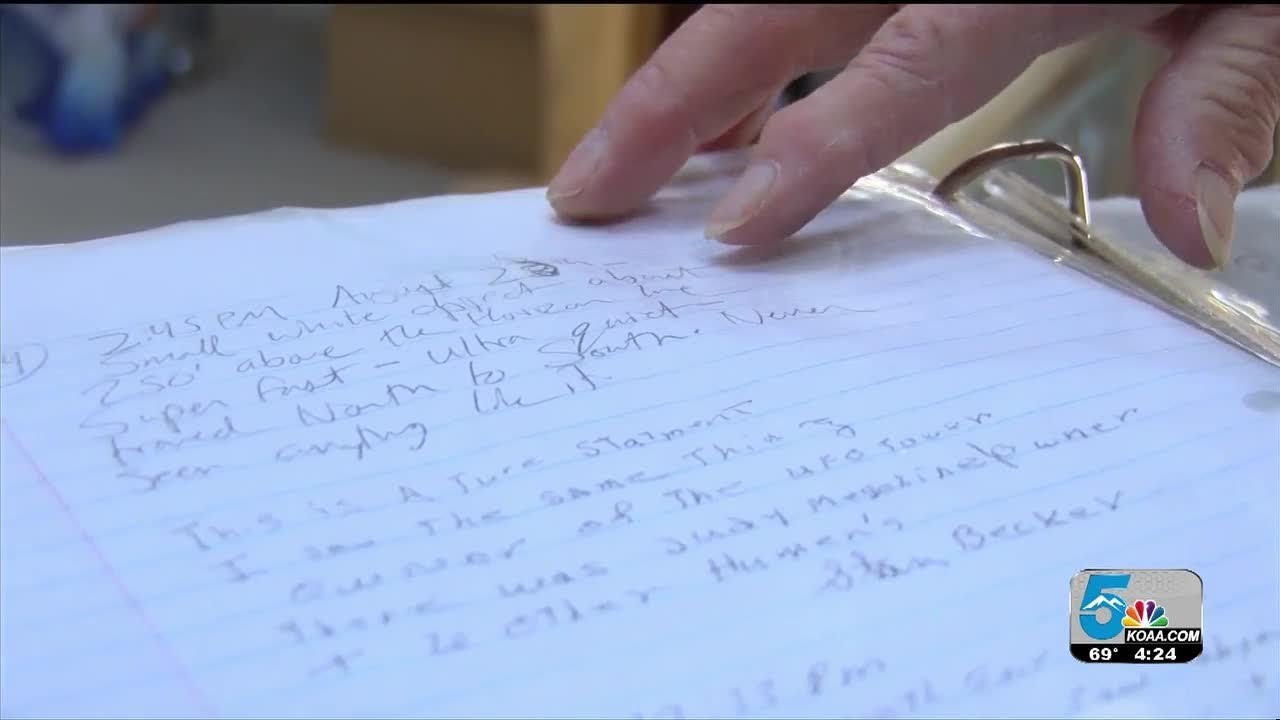 4) 2:45 PM August 2
Small white object about
250' above the Horizon line
Super fast - Ultra quiet -
traved North to South. Never
seen anything like it.
This is A Ture Statment
I saw The same Thing
owner of The UFO Tower
There was Judy Messoline owner
+ 20 other Humen's
Stan Becker
13 PM
5 KOAA.COM
69° 4:24